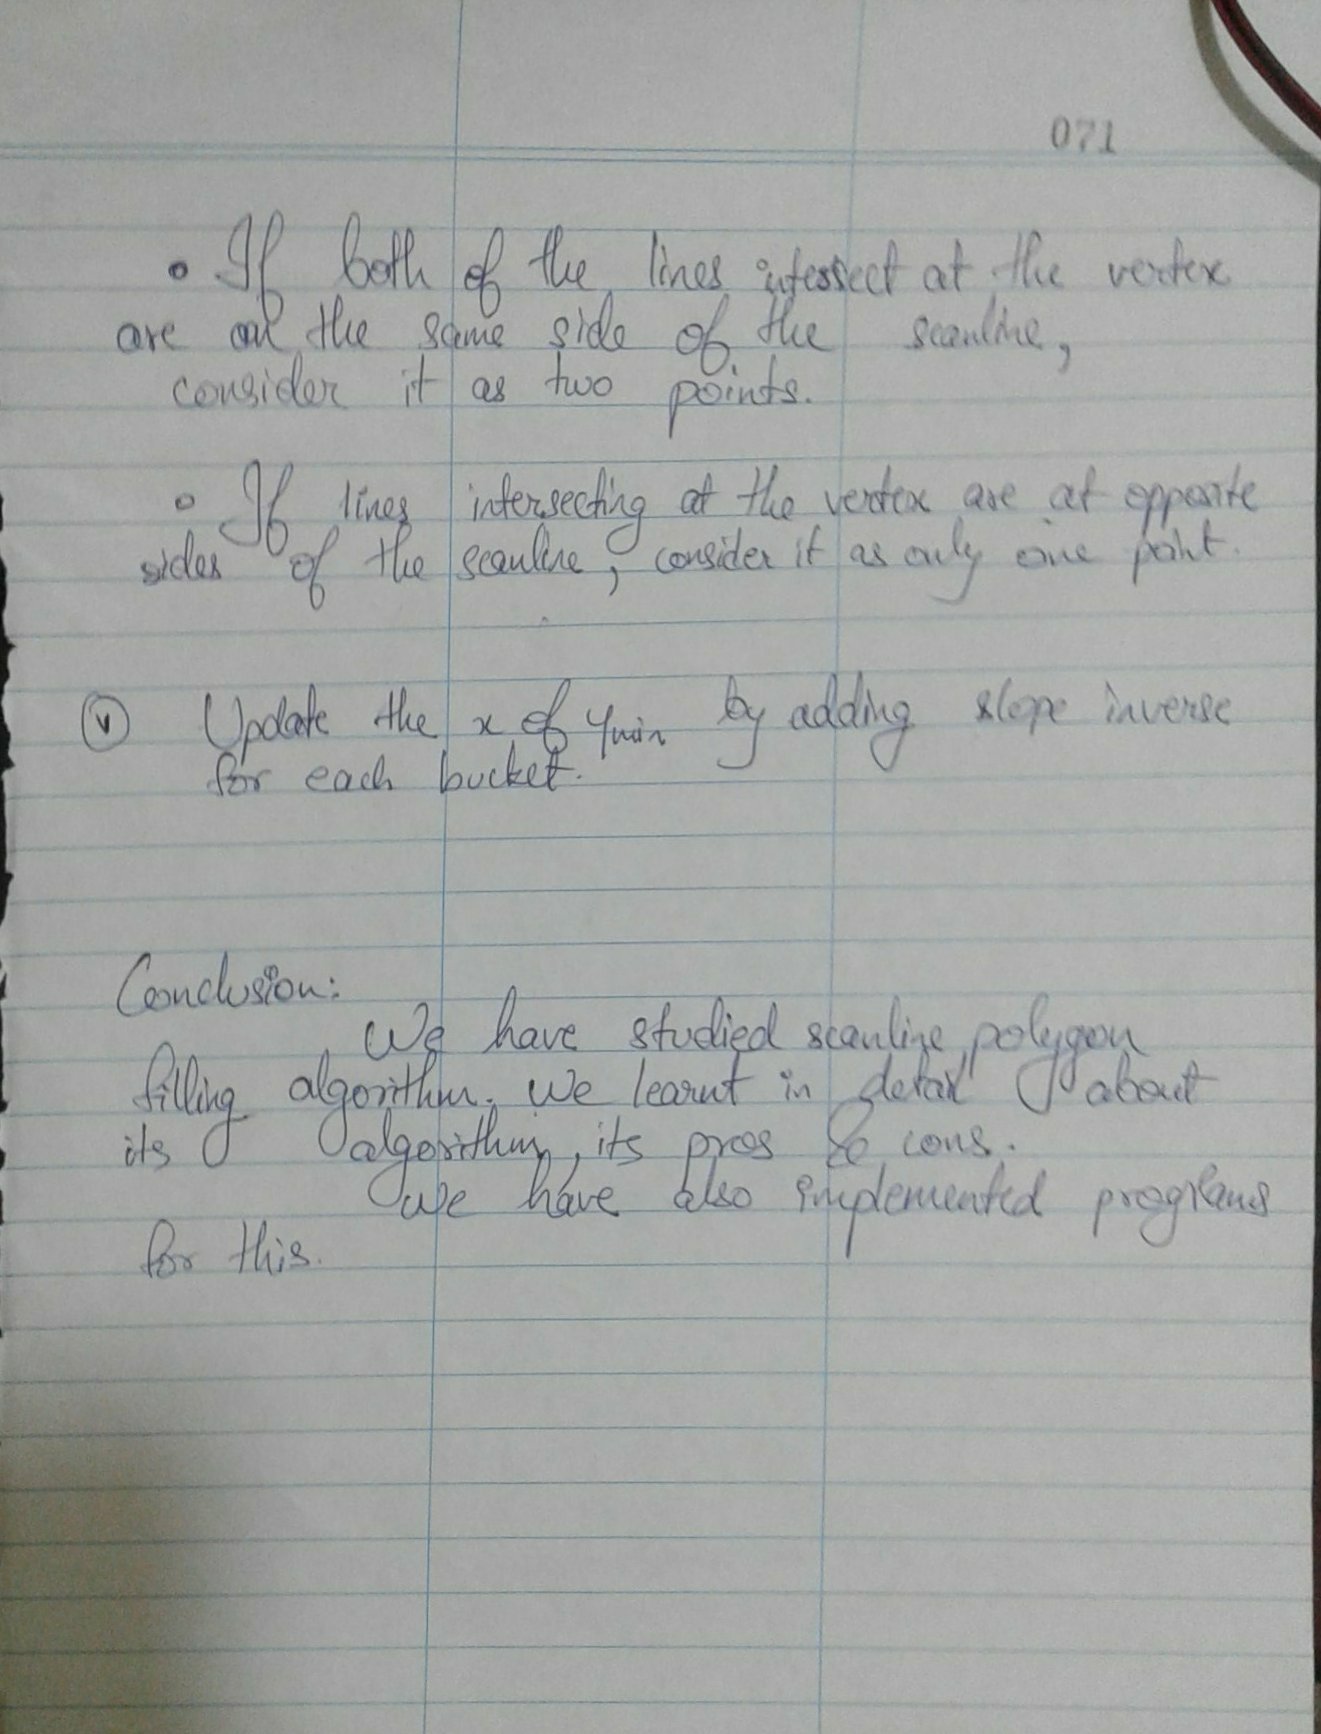 071
• If both of the lines intersect at the vertex
are on the same side of the scanline,
consider it as two points.
• If lines intersecting at the vertex are at opposite
sides of the scanline, consider it as only one point.
(v) Update the x of ymin by adding slope inverse
for each bucket.
Conclusion:
We have studied scanline polygon
filling algorithm. We learnt in detail about
its algorithm, its pros & cons.
We have also implemented programs
for this.